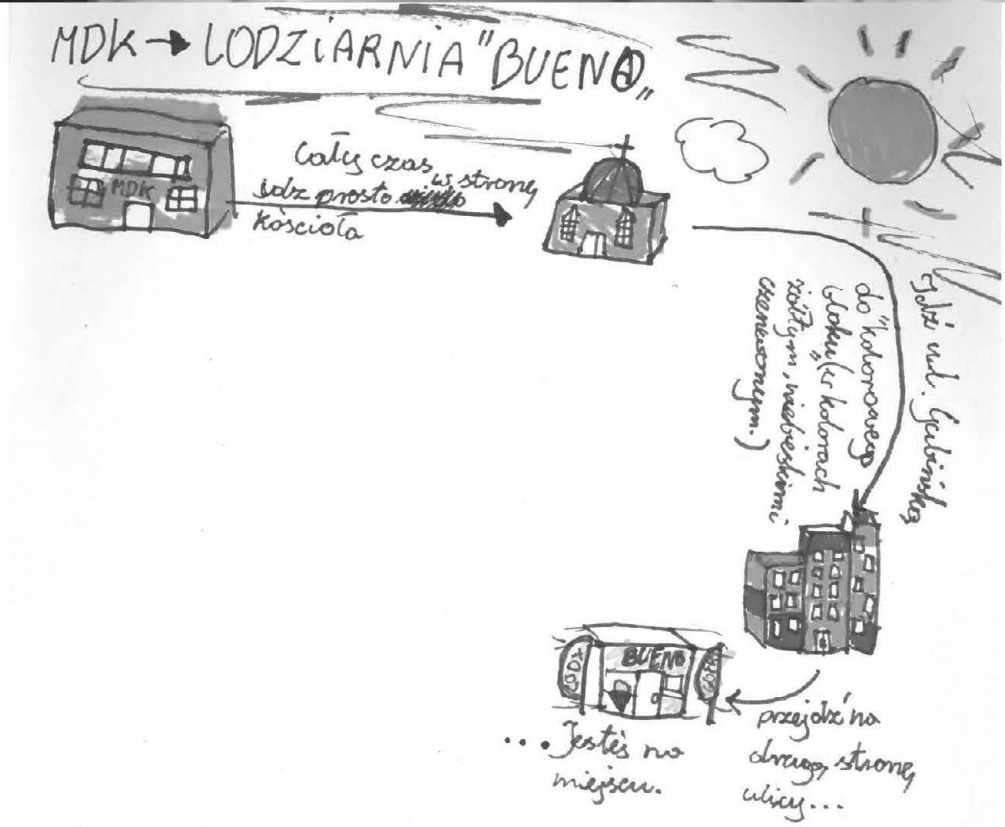 MDK → LODZiARNIA "BUENO„
MDK
Cały czas
idz prosto w stronę
kościoła
Idź ul. Gubińską
do "kolorowego
bloku„ (w kolorach
żółtym, niebieskim i
czerwonym.)
przejdź na
drugą stronę
ulicy...
BUENO
LODY
... Jesteś na
miejscu.